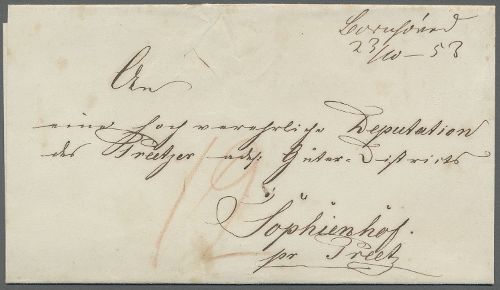 Bornhöved
23/10-53
An
eine hochverehrliche Deputation
des Preetzer adel. Güter-Districts
12
zu
Sophienhof.
pr Preetz